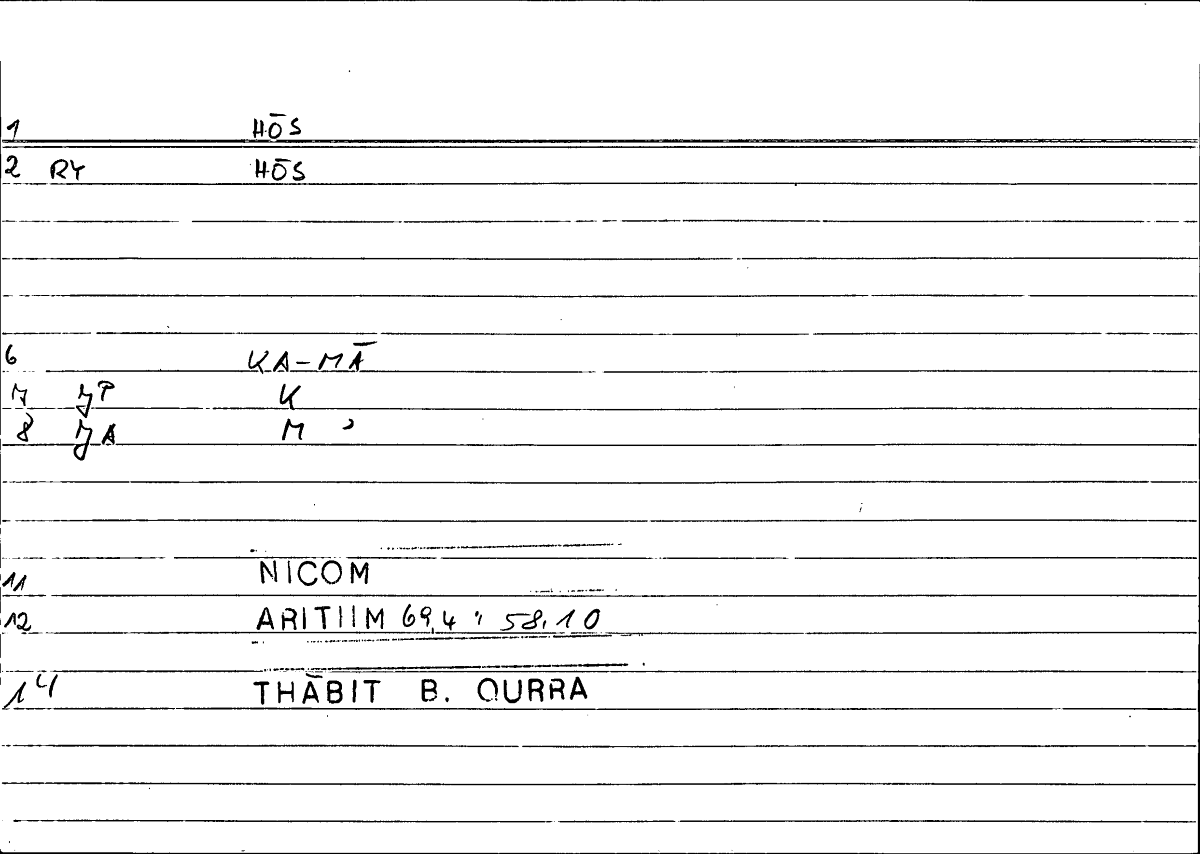 1 HŌS
2 RY HŌS
6 KA-MĀ
7 JP K
8 JA M ʾ
11 NICOM
12 ARITHM 69,4 : 58,10
14 THĀBIT B. QURRA